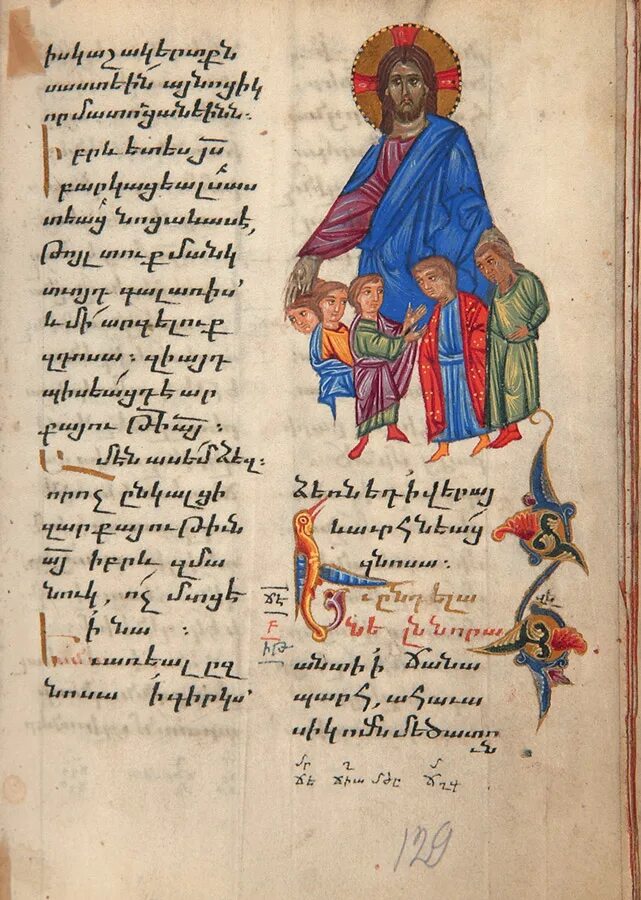 իսկ աշակերտքն
սաստեին այնոցիկ
որ մատուցանեինն։
Իբրև ետես յս̅
բարկացեալ սաս
տեաց նոցա և ասէ,
Թոյլ տուք մանկ
տւոյդ գալ առ իս՝
և մի արգելուք
զդոսա։ զի այդ
պիսեացդ է ար
քայութի այ̅։
Ամեն ասեմ ձեզ։
որ ոչ ընկալցի
զարքայութին
այ̅ իբրև զմա
նուկ, ոչ մտցէ
ի նա։
Եւ առեալ ըզ
նոսա ի գիրկս՝
Ձեռն եդ ի վերայ
և աւրհնեաց
զնոսա։
Եւ ընդ ելա
նել նորա
անտի ի ճանա
պարհ, ահաւա
սիկ ոմն մեծատու
ն
ճէ
բ
129